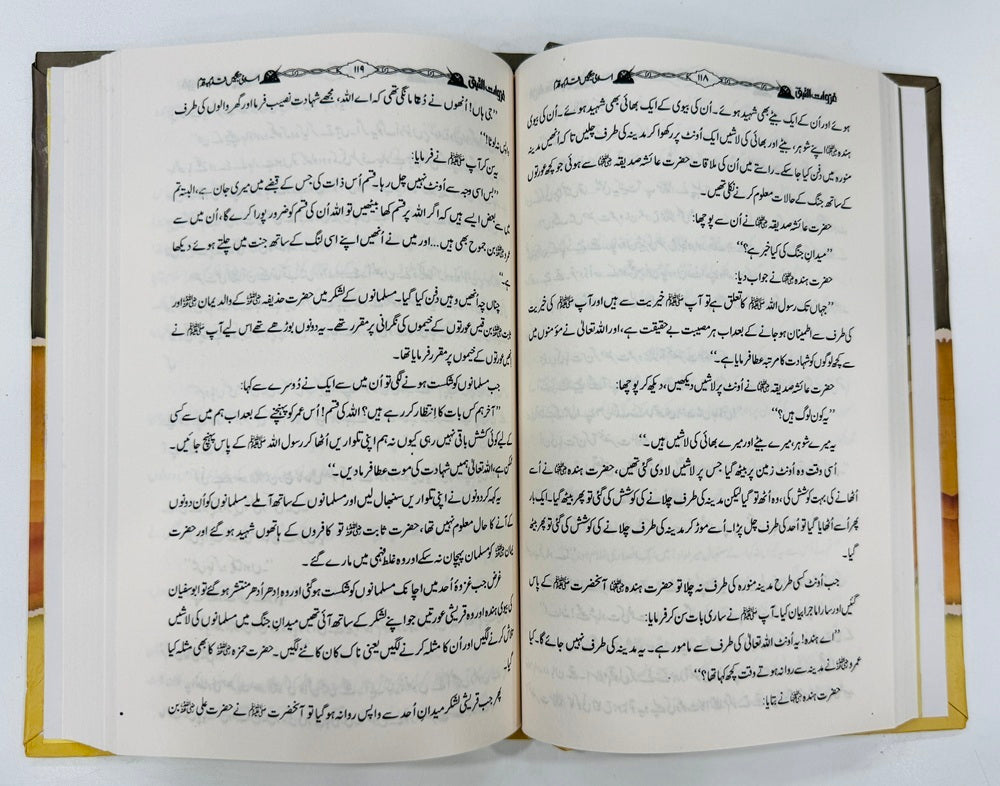 غزوات النبی ﷺ ۱۱۸
ہوئے اور اُن کے ایک بیٹے بھی شہید ہوئے۔ اُن کی بیوی کے ایک بھائی بھی شہید ہوئے۔ اُن کی بیوی
ہندہ ؓ اپنے شوہر، بیٹے اور بھائی کی لاشیں ایک اُونٹ پر رکھوا کر مدینہ کی طرف چلیں تا کہ انھیں مدینہ
منورہ میں دفن کیا جا سکے۔ راستے میں اُن کی ملاقات حضرت عائشہ صدیقہ ؓ سے ہوئی جو کچھ عورتوں
کے ساتھ جنگ کے حالات معلوم کرنے نکلی تھیں۔
حضرت عائشہ صدیقہ ؓ نے اُن سے پوچھا:
”میدانِ جنگ کی کیا خبر ہے؟“
حضرت ہندہ ؓ نے جواب دیا:
”جہاں تک رسول اللہ ﷺ کا تعلق ہے تو آپ ﷺ خیریت سے ہیں اور آپ ﷺ کی خیریت
کی طرف سے اطمینان ہو جانے کے بعد اب ہر مصیبت بے حقیقت ہے، اور اللہ تعالیٰ نے مؤمنوں میں
سے کچھ لوگوں کو شہادت کا مرتبہ عطا فرمایا ہے۔“
حضرت عائشہ صدیقہ ؓ نے اُونٹ پر لاشیں دیکھیں، دیکھ کر پوچھا:
”یہ کون لوگ ہیں؟“
یہ میرے شوہر، میرے بیٹے اور میرے بھائی کی لاشیں ہیں۔“
اُسی وقت وہ اُونٹ زمین پر بیٹھ گیا جس پر لاشیں لادی گئی تھیں، حضرت ہندہ ؓ نے اُسے
اُٹھانے کی بہت کوشش کی، وہ اُٹھ تو گیا لیکن مدینہ کی طرف چلانے کی کوشش کی گئی تو پھر بیٹھ گیا۔ ایک بار
پھر اُسے اُٹھایا گیا تو اُحد کی طرف چل پڑا۔ اُسے موڑ کر مدینہ کی طرف چلانے کی کوشش کی گئی تو پھر بیٹھ
گیا۔
جب اُونٹ کسی طرح مدینہ منورہ کی طرف نہ چلا تو حضرت ہندہ ؓ آنحضرت ﷺ کے پاس
گئیں اور سارا ماجرا بیان کیا۔ آپ ﷺ نے ساری بات سن کر فرمایا:
”اے ہندہ! یہ اُونٹ اللہ تعالیٰ کی طرف سے مامور ہے۔ یہ مدینہ کی طرف نہیں جائے گا۔ کیا
عمرو ؓ نے مدینہ سے روانہ ہوتے وقت کچھ کہا تھا؟“
حضرت ہندہ ؓ نے بتایا:
۱۱۹
”جی ہاں! اُنھوں نے دُعا مانگی تھی کہ اے اللہ، مجھے شہادت نصیب فرما اور گھر والوں کی طرف
نہ لوٹانا!“
یہ سن کر آپ ﷺ نے فرمایا:
”بس اسی وجہ سے اُونٹ نہیں چل رہا۔ قسم اُس ذات کی جس کے قبضے میں میری جان ہے، البتہ تم
میں سے بعض ایسے ہیں کہ اگر اللہ پر قسم کھا بیٹھیں تو اللہ اُن کی قسم کو ضرور پورا کرے گا، اُن میں سے
ؓ بن جموح بھی ہیں... اور میں نے اُنھیں اپنے اسی لنگ کے ساتھ جنت میں چلتے ہوئے دیکھا
ہے۔“
چناں چہ اُنھیں وہیں دفن کیا گیا۔ مسلمانوں کے لشکر میں حضرت حذیفہ ؓ کے والد یمان ؓ اور
ؓ بن قیس عورتوں کے خیموں کی نگرانی پر مقرر تھے۔ یہ دونوں بوڑھے تھے اس لیے آپ ﷺ نے
عورتوں کے خیموں پر مقرر فرمایا تھا۔
جب مسلمانوں کو شکست ہونے لگی تو اُن میں سے ایک نے دُوسرے سے کہا:
”آخر ہم کس بات کا اِنتظار کر رہے ہیں؟ اللہ کی قسم! اُس عمر کو پہنچنے کے بعد اب ہم میں سے کسی
کے لیے کوئی کشش باقی نہیں رہی کیوں نہ ہم اپنی تلواریں اُٹھا کر رسول اللہ ﷺ کے پاس پہنچ جائیں۔
ممکن ہے، اللہ تعالیٰ ہمیں شہادت کی موت عطا فرما دیں۔“
یہ کہہ کر دونوں نے اپنی تلواریں سنبھال لیں اور مسلمانوں کے ساتھ آ ملے۔ مسلمانوں کو اُن دونوں
کے آنے کا حال معلوم نہیں تھا، حضرت ثابت ؓ تو کافروں کے ہاتھوں شہید ہو گئے اور حضرت
یمان ؓ کو مسلمان پہچان نہ سکے اور وہ غلط فہمی میں مارے گئے۔
غرض جب غزوۂ اُحد میں اچانک مسلمانوں کو شکست ہو گئی اور وہ اِدھر اُدھر منتشر ہو گئے تو ابوسفیان
کی بیوی ہندہ اور وہ قریشی عورتیں جو اپنے لشکر کے ساتھ آئی تھیں میدانِ جنگ میں مسلمانوں کی لاشیں
تلاش کرنے لگیں اور اُن کا مثلہ کرنے لگیں یعنی ناک کان کاٹنے لگیں۔ حضرت حمزہ ؓ کا بھی مثلہ کیا
گیا۔
پھر جب قریشی لشکر میدانِ اُحد سے واپس روانہ ہو گیا تو آنحضرت ﷺ نے حضرت علی ؓ بن